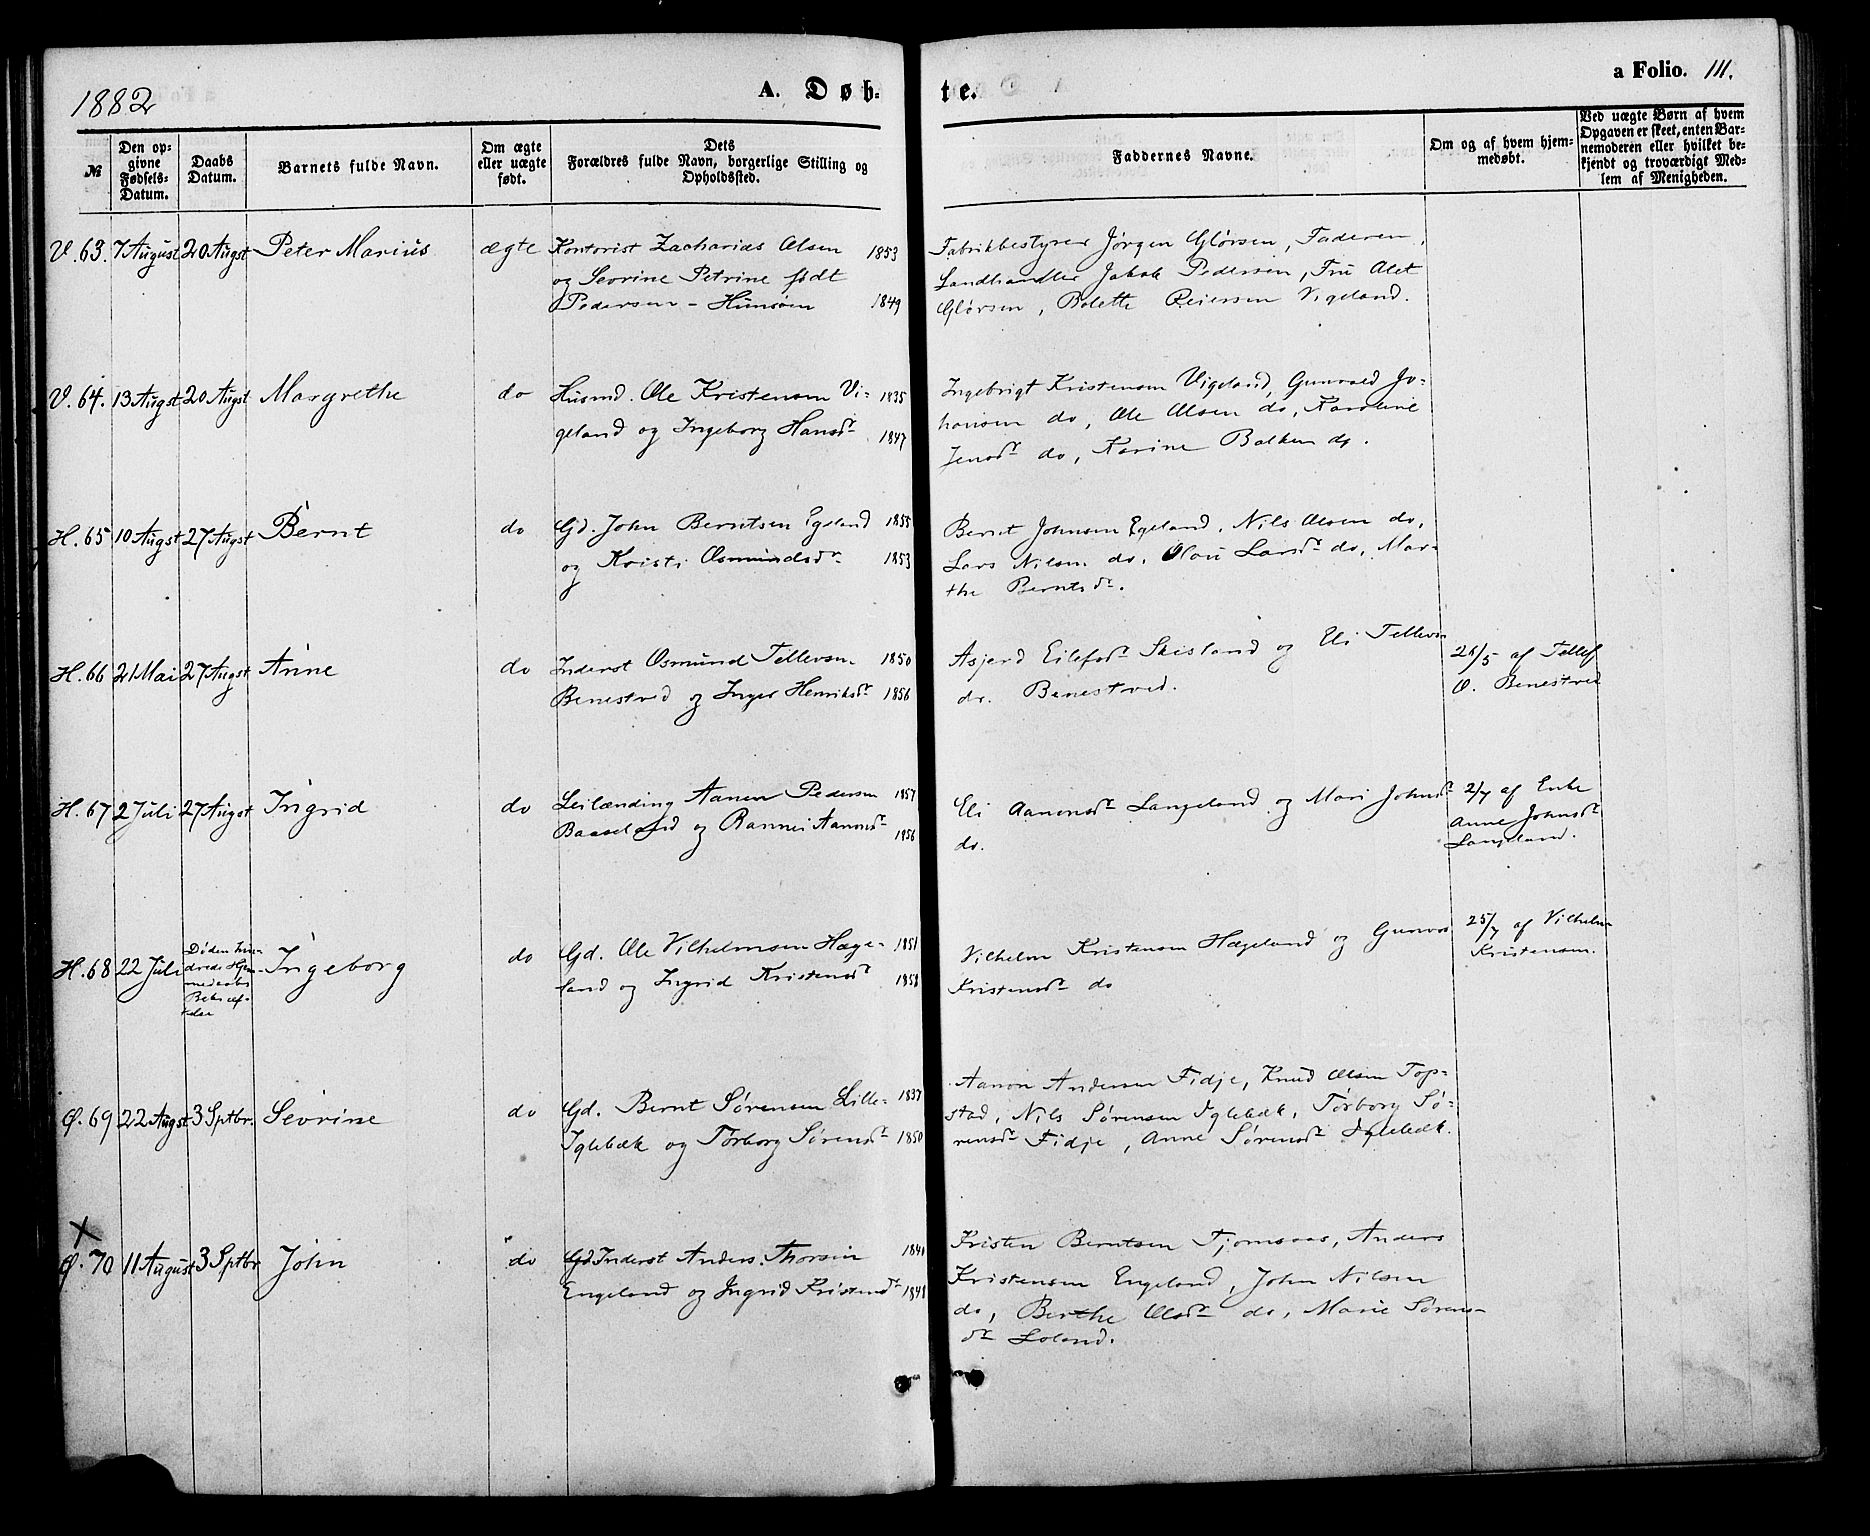 1882
A. Døb-
te.
a Folio. 111.
№
Den op-
givne
Fødsels-
Datum.
Daabs
Datum.
Barnets fulde Navn.
Om ægte
eller uægte
født.
Dets
Forældres fulde Navn, borgerlige Stilling og
Opholdssted.
Faddernes Navne.
Om og af hvem hjem-
medøbt.
Ved uægte Børn af hvem
Opgaven er skeet, enten Bar-
nemoderen eller hvilket be-
kjendt og troværdigt Med-
lem af Menigheden.
V. 63. 7 August 20 Augst Peter Marius ægte
Kontorist Zacharias Olsen 1853
og Sevrine Petrine født
Pedersen - Hunsøen 1849
Fabrikbestyrer Jørgen Glørsen, Faderen,
Landhandler Jakob Pedersen, Fru Alet
Glørsen, Bolette Reiersen Vigeland.
V. 64. 13 Augst 20 Augst Margrethe do
Husmd. Ole Kristensen Vi- 1835
geland og Ingeborg Hansdr 1847
Ingebrigt Kristensen Vigeland, Gunvald Jo-
hansen do, Ole Olsen do, Karoline
Jensdr do, Karine Balken do.
H. 65 10 Augst 27 Augst Bernt do
Gd. John Berntsen Egeland 1855
og Kristi Osmundsdr 1853
Bernt Johnsen Egeland, Nils Olsen do,
Lars Nilsen do, Olau Larsdr do, Mar-
the Berntsdr.
H. 66 21 Mai 27 Augst Anne do
Inderst Osmund Tellevsen 1850
Benestved og Inger Henriksdr 1856
Asjerd Eilefsdr Skisland og Eli Tellevs
dr. Benestved.
26/5 af Tellef
O. Benestved
H. 67 2 Juli 27 Augst Ingrid do
Leilænding Aanen Pedersen 1857
Baaseland og Rannei Aanonsdr 1856
Eli Aanonsdr Langeland og Mari Johnsdr
do.
2/7 af Enke
Anne Johnsdr
Langeland.
H. 68 22 Juli
Døden
Ingeborg do
Gd. Ole Vilhelmsen Hæge- 1851
land og Ingrid Kristensdr 1858
Vilhelm Kristensen Hægeland og Gunvor
Kristensdr do
25/7 af Vilhelm
Kristensen.
Ø. 69 22 Augst 3 Sptbr. Sevrine do
Gd. Bernt Sørensen Lille- 1837
Iglebæk og Torborg Sørensdr 1850
Aanon Andersen Fidje, Knud Olsen Top-
stad, Nils Sørensen Iglebæk, Torborg Sø-
rensdr Fidje, Anne Sørensdr Iglebæk.
X
Ø. 70 11 August 3 Sptbr John do
Gd Inderst Anders Thorsen
Engeland og Ingrid Kristensdr 1848
Kristen Berntsen Tjomsaas, Anders
Kristensen Engeland, John Nilsen
do, Berthe Olsdr do, Marie Sørens-
dr Loland.